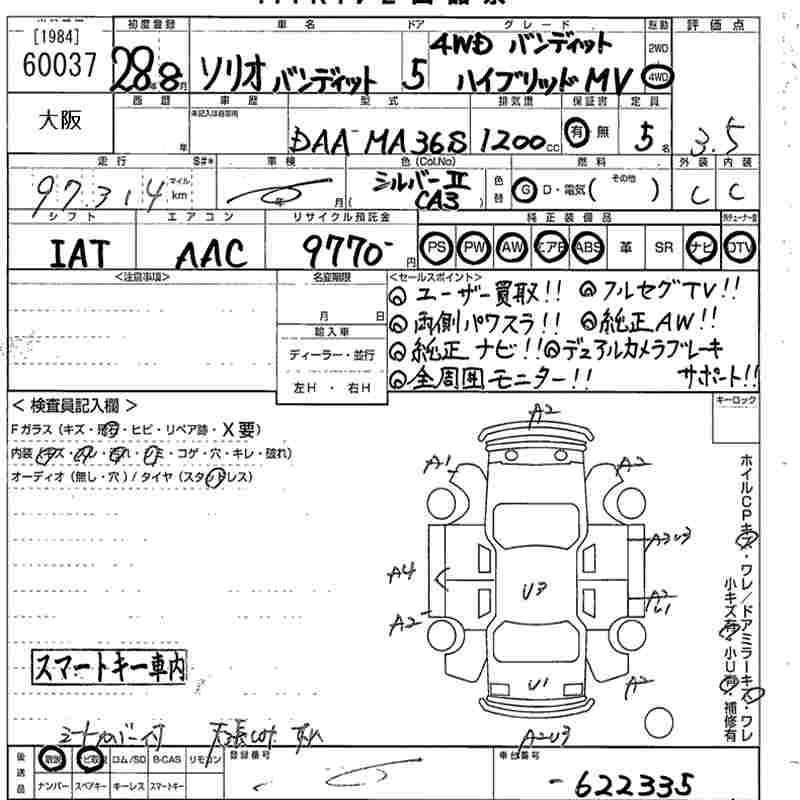 [1984]
60037
大阪
初度登録 車名 ドア グレード 駆動 評価点
28年8月 ソリオ バンディット 5 4WD バンディット
ハイブリッドMV
2WD
4WD
西暦 車歴 型式 排気量 保証書 定員
年 未記入は自家用 DAA-MA36S 1200cc 有・無 5名 3.5
走行 S#* 車検 色(Col.No) 燃料 外装 内装
97,314 マイル km 年 月 シルバーII
(CA3) 色替 G D・電気( その他 ) C C
シフト エアコン リサイクル預託金 純正装備品
IAT AAC 9770- 円 PS PW AW エアB ABS 革 SR ナビ DTV
<注意事項> 名変期限 <セールスポイント>
月 日
輸入車
ディーラー・並行
左H ・ 右H
ユーザー買取!! フルセグTV!!
両側パワスラ!! 純正AW!!
純正ナビ!! デュアルカメラブレーキ
全周囲モニター!! サポート!!
キーロック
<検査員記入欄>
Fガラス(キズ・飛石・ヒビ・リペア跡・X要)
内装(キズ・スレ・汚れ・シミ・コゲ・穴・キレ・破れ)
オーディオ(無し・穴)/タイヤ(スタッドレス)
A2
A1 A2
A3U3
A4 U3 A2
U1
A2
U1 A2
A2U3
ホイルCPキズ・ワレ/ドアミラーキズ・ワレ
小キズ有・小U有・補修有
スマートキー車内
シートカバー付
後送品
取説 ナビ取説 ロム/SD B-CAS リモコン
ナンバー スペアキー キーレス スマートキー
登録番号 車台番号
-622335